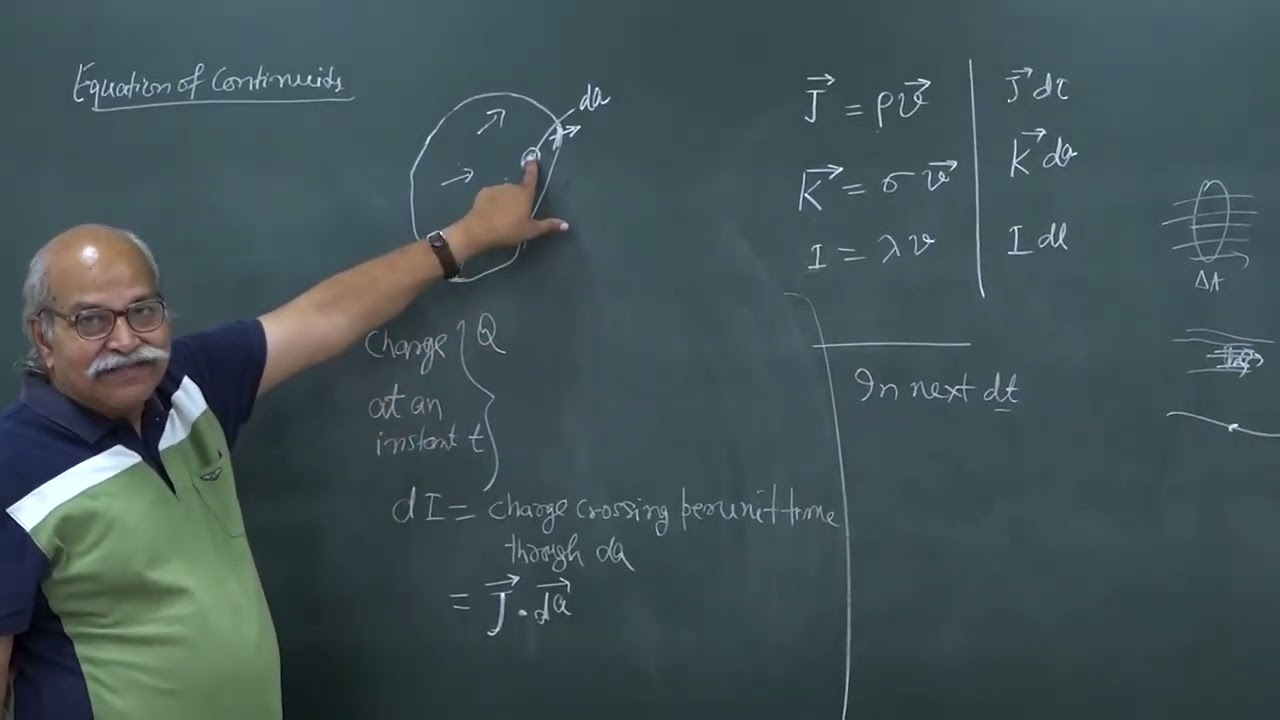 Equation of Continuity
da
Charge
at an
instant t
Q
dI = charge crossing per unit time
through da
= J⃗ · da⃗
J⃗ = ρv⃗
K⃗ = σv⃗
I = λv
J⃗ dτ
K⃗ da
I dl
ΔA
In next dt